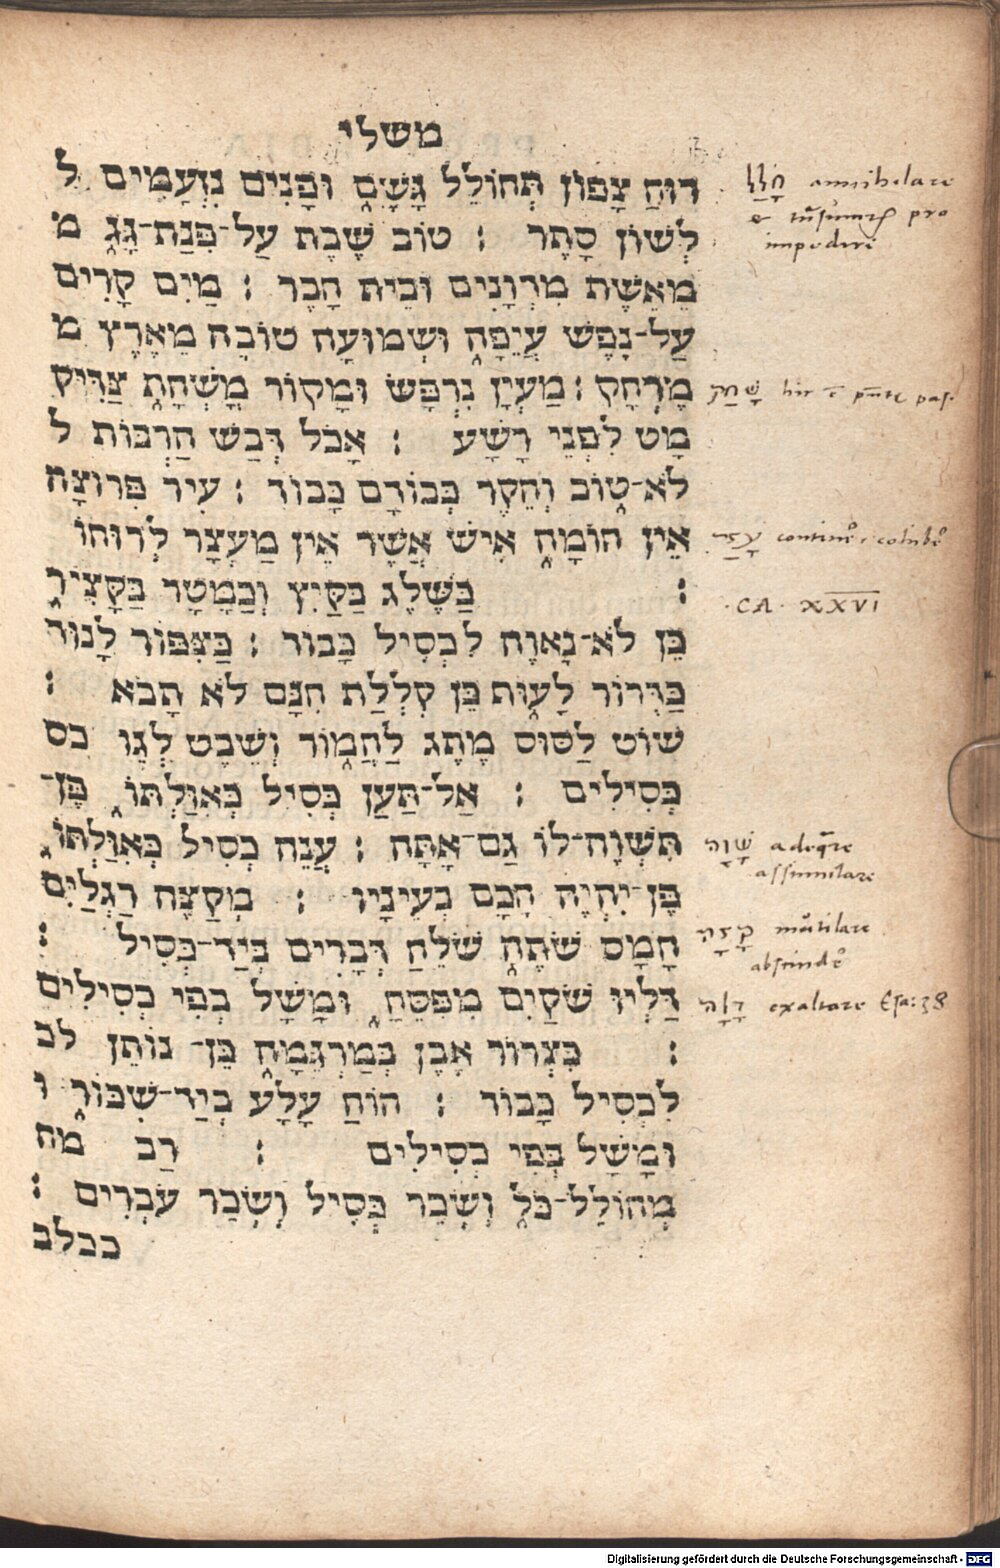 משלי
רוּחַ צָפוֹן תְּחוֹלֵל גָּשֶׁם וּפָנִים נִזְעָמִים ל
לְשׁוֹן סָתֶר : טוֹב שֶׁבֶת עַל־פִּנַּת־גָּג מ
מֵאֵשֶׁת מִדְוָנִים וּבֵית חָבֶר : מַיִם קָרִים
עַל־נֶפֶשׁ עֲיֵפָה וּשְׁמוּעָה טוֹבָה מֵאֶרֶץ מ
מֶרְחָק : מַעְיָן נִרְפָּשׂ וּמָקוֹר מָשְׁחָת צַדִּיק
מָט לִפְנֵי רָשָׁע : אָכֹל דְּבַשׁ הַרְבּוֹת ל
לֹא־טוֹב וְחֵקֶר כְּבוֹדָם כָּבוֹד : עִיר פְּרוּצָה
אֵין חוֹמָה אִישׁ אֲשֶׁר אֵין מַעְצָר לְרוּחוֹ
: כַּשֶּׁלֶג בַּקַּיִץ וְכַמָּטָר בַּקָּצִיר
כֵּן לֹא־נָאוֶה לִכְסִיל כָּבוֹד : כַּצִּפּוֹר לָנוּד
כַּדְּרוֹר לָעוּף כֵּן קִלְלַת חִנָּם לֹא תָבֹא :
שׁוֹט לַסּוּס מֶתֶג לַחֲמוֹר וְשֵׁבֶט לְגֵו כס
כְּסִילִים : אַל־תַּעַן כְּסִיל כְּאִוַּלְתּוֹ פֶּן־
תִּשְׁוֶה־לּוֹ גַם־אָתָּה : עֲנֵה כְסִיל כְּאִוַּלְתּוֹ
פֶּן־יִהְיֶה חָכָם בְּעֵינָיו : מְקַצֶּה רַגְלַיִם
חָמָס שֹׁתֶה שֹׁלֵחַ דְּבָרִים בְּיַד־כְּסִיל :
דַּלְיוּ שֹׁקַיִם מִפִּסֵּחַ וּמָשָׁל בְּפִי כְסִילִים
: כִּצְרוֹר אֶבֶן בְּמַרְגֵּמָה כֵּן־ נוֹתֵן לכ
לִכְסִיל כָּבוֹד : חוֹחַ עָלָה בְיַד־שִׁכּוֹר ו
וּמָשָׁל בְּפִי כְסִילִים : רַב מח
מְחוֹלֵל־כֹּל וְשֹׂכֵר כְּסִיל וְשֹׂכֵר עֹבְרִים :
ככלב
annihelare
pro
impedire
שָׁחַת hic
עָצַר
· CA · XXVI
שָׁוָה
assimilare
קָצָה mutilare
דָּלָה exaltare Esa: 38
Digitalisierung gefördert durch die Deutsche Forschungsgemeinschaft - DFG